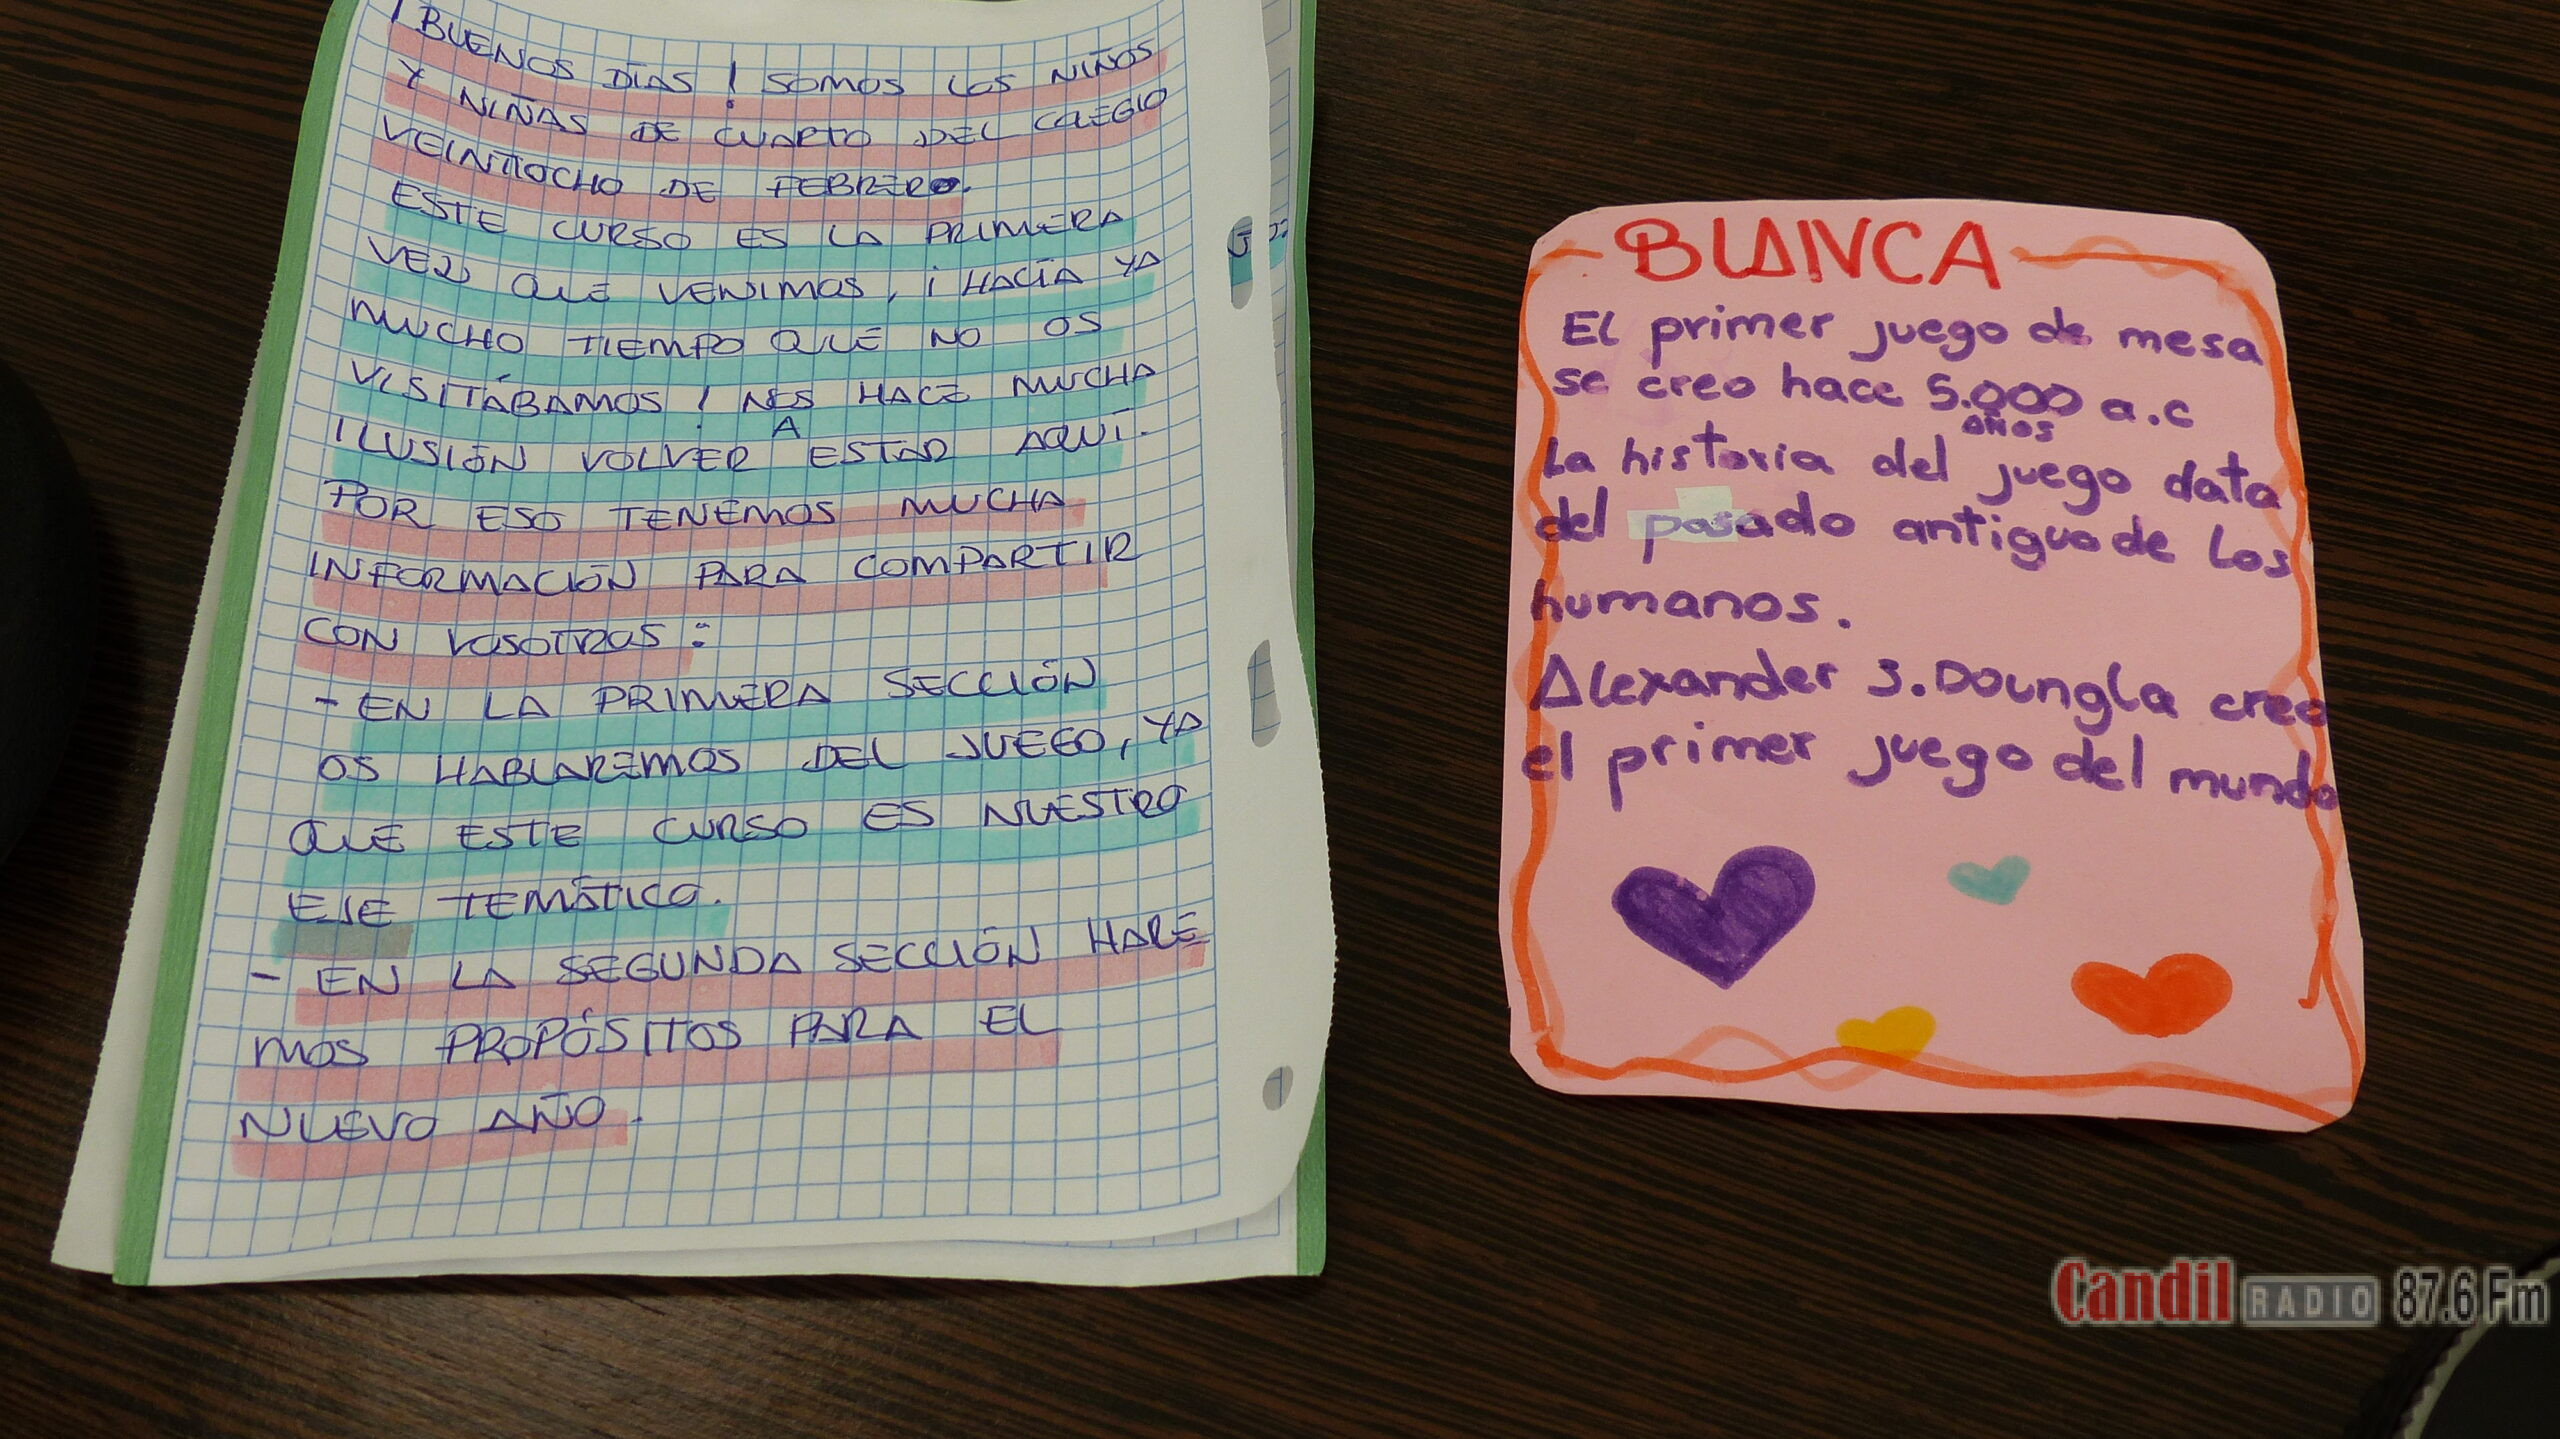 ¡BUENOS DÍAS! SOMOS LOS NIÑOS
Y NIÑAS DE CUARTO DEL COLEGIO
VEINTIOCHO DE FEBRERO.
ESTE CURSO ES LA PRIMERA
VEZ QUE VENIMOS, ¡HACÍA YA
MUCHO TIEMPO QUE NO OS
VISITÁBAMOS! NOS HACE MUCHA
ILUSIÓN VOLVER A ESTAR AQUÍ.
POR ESO TENEMOS MUCHA
INFORMACIÓN PARA COMPARTIR
CON VOSOTROS:
- EN LA PRIMERA SECCIÓN
OS HABLAREMOS DEL JUEGO, YA
QUE ESTE CURSO ES NUESTRO
EJE TEMÁTICO.
- EN LA SEGUNDA SECCIÓN HARE
MOS PROPÓSITOS PARA EL
NUEVO AÑO.
BLANCA
El primer juego de mesa
se creo hace 5.000 a.c
años
La historia del juego data
del pasado antiguo de los
humanos.
Alexander S. Doungla creo
el primer juego del mundo
Candil RADIO 87.6 Fm